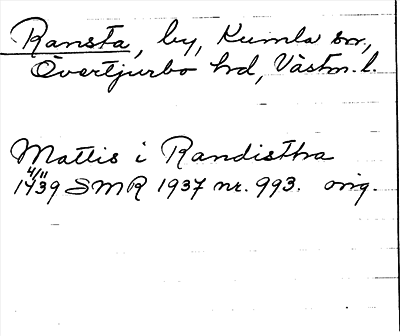 Ransta, by, Kumla sn,
Övertjurbo hd, Västm. l.
Mattis i Randistha
4/11
1439 SMR 1937 nr. 993. orig.